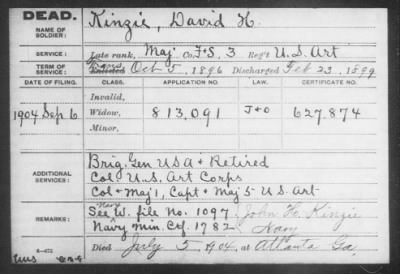 DEAD.
NAME OF SOLDIER: Kinzie, David H.
SERVICE: Late rank, Maj Co. F+S, 3 Reg't U.S. Art
TERM OF SERVICE: Enlisted Oct 5, 1896 Discharged Feb 23, 1899
DATE OF FILING. CLASS. APPLICATION NO. LAW. CERTIFICATE NO.
Invalid,
1904 Sep 6 Widow, 813,091 J+O 627,874
Minor,
ADDITIONAL SERVICES: Brig. Gen USA + Retired
Col U.S. Art Corps
Col + Maj 1, Capt + Maj 5 U.S. Art
REMARKS: See Navy W. file No. 1097 John H. Kinzie
Navy Min. Ctf. 1782. Navy
Died July 5, 1904, at Atlanta Ga,